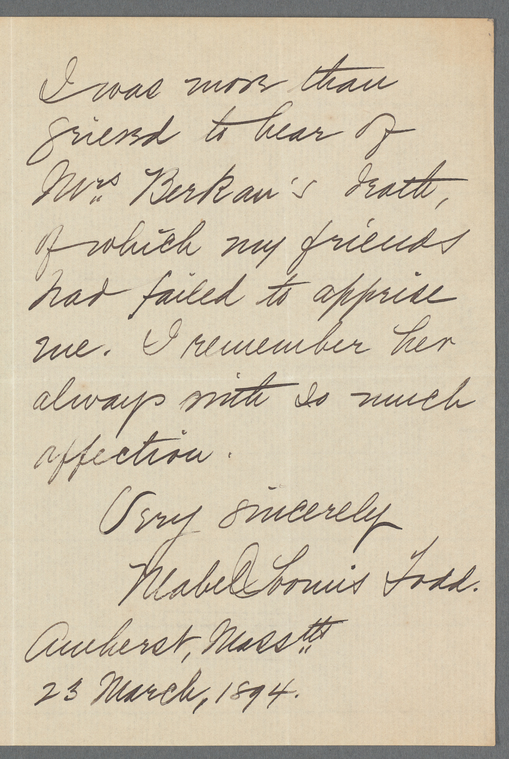 I was more than
grieved to hear of
Mrs Berkau's death,
of which my friends
had failed to apprise
me. I remember her
always with so much
affection.
Very sincerely
Mabel Loomis Todd.
Amherst, Masstts
23 March, 1894.